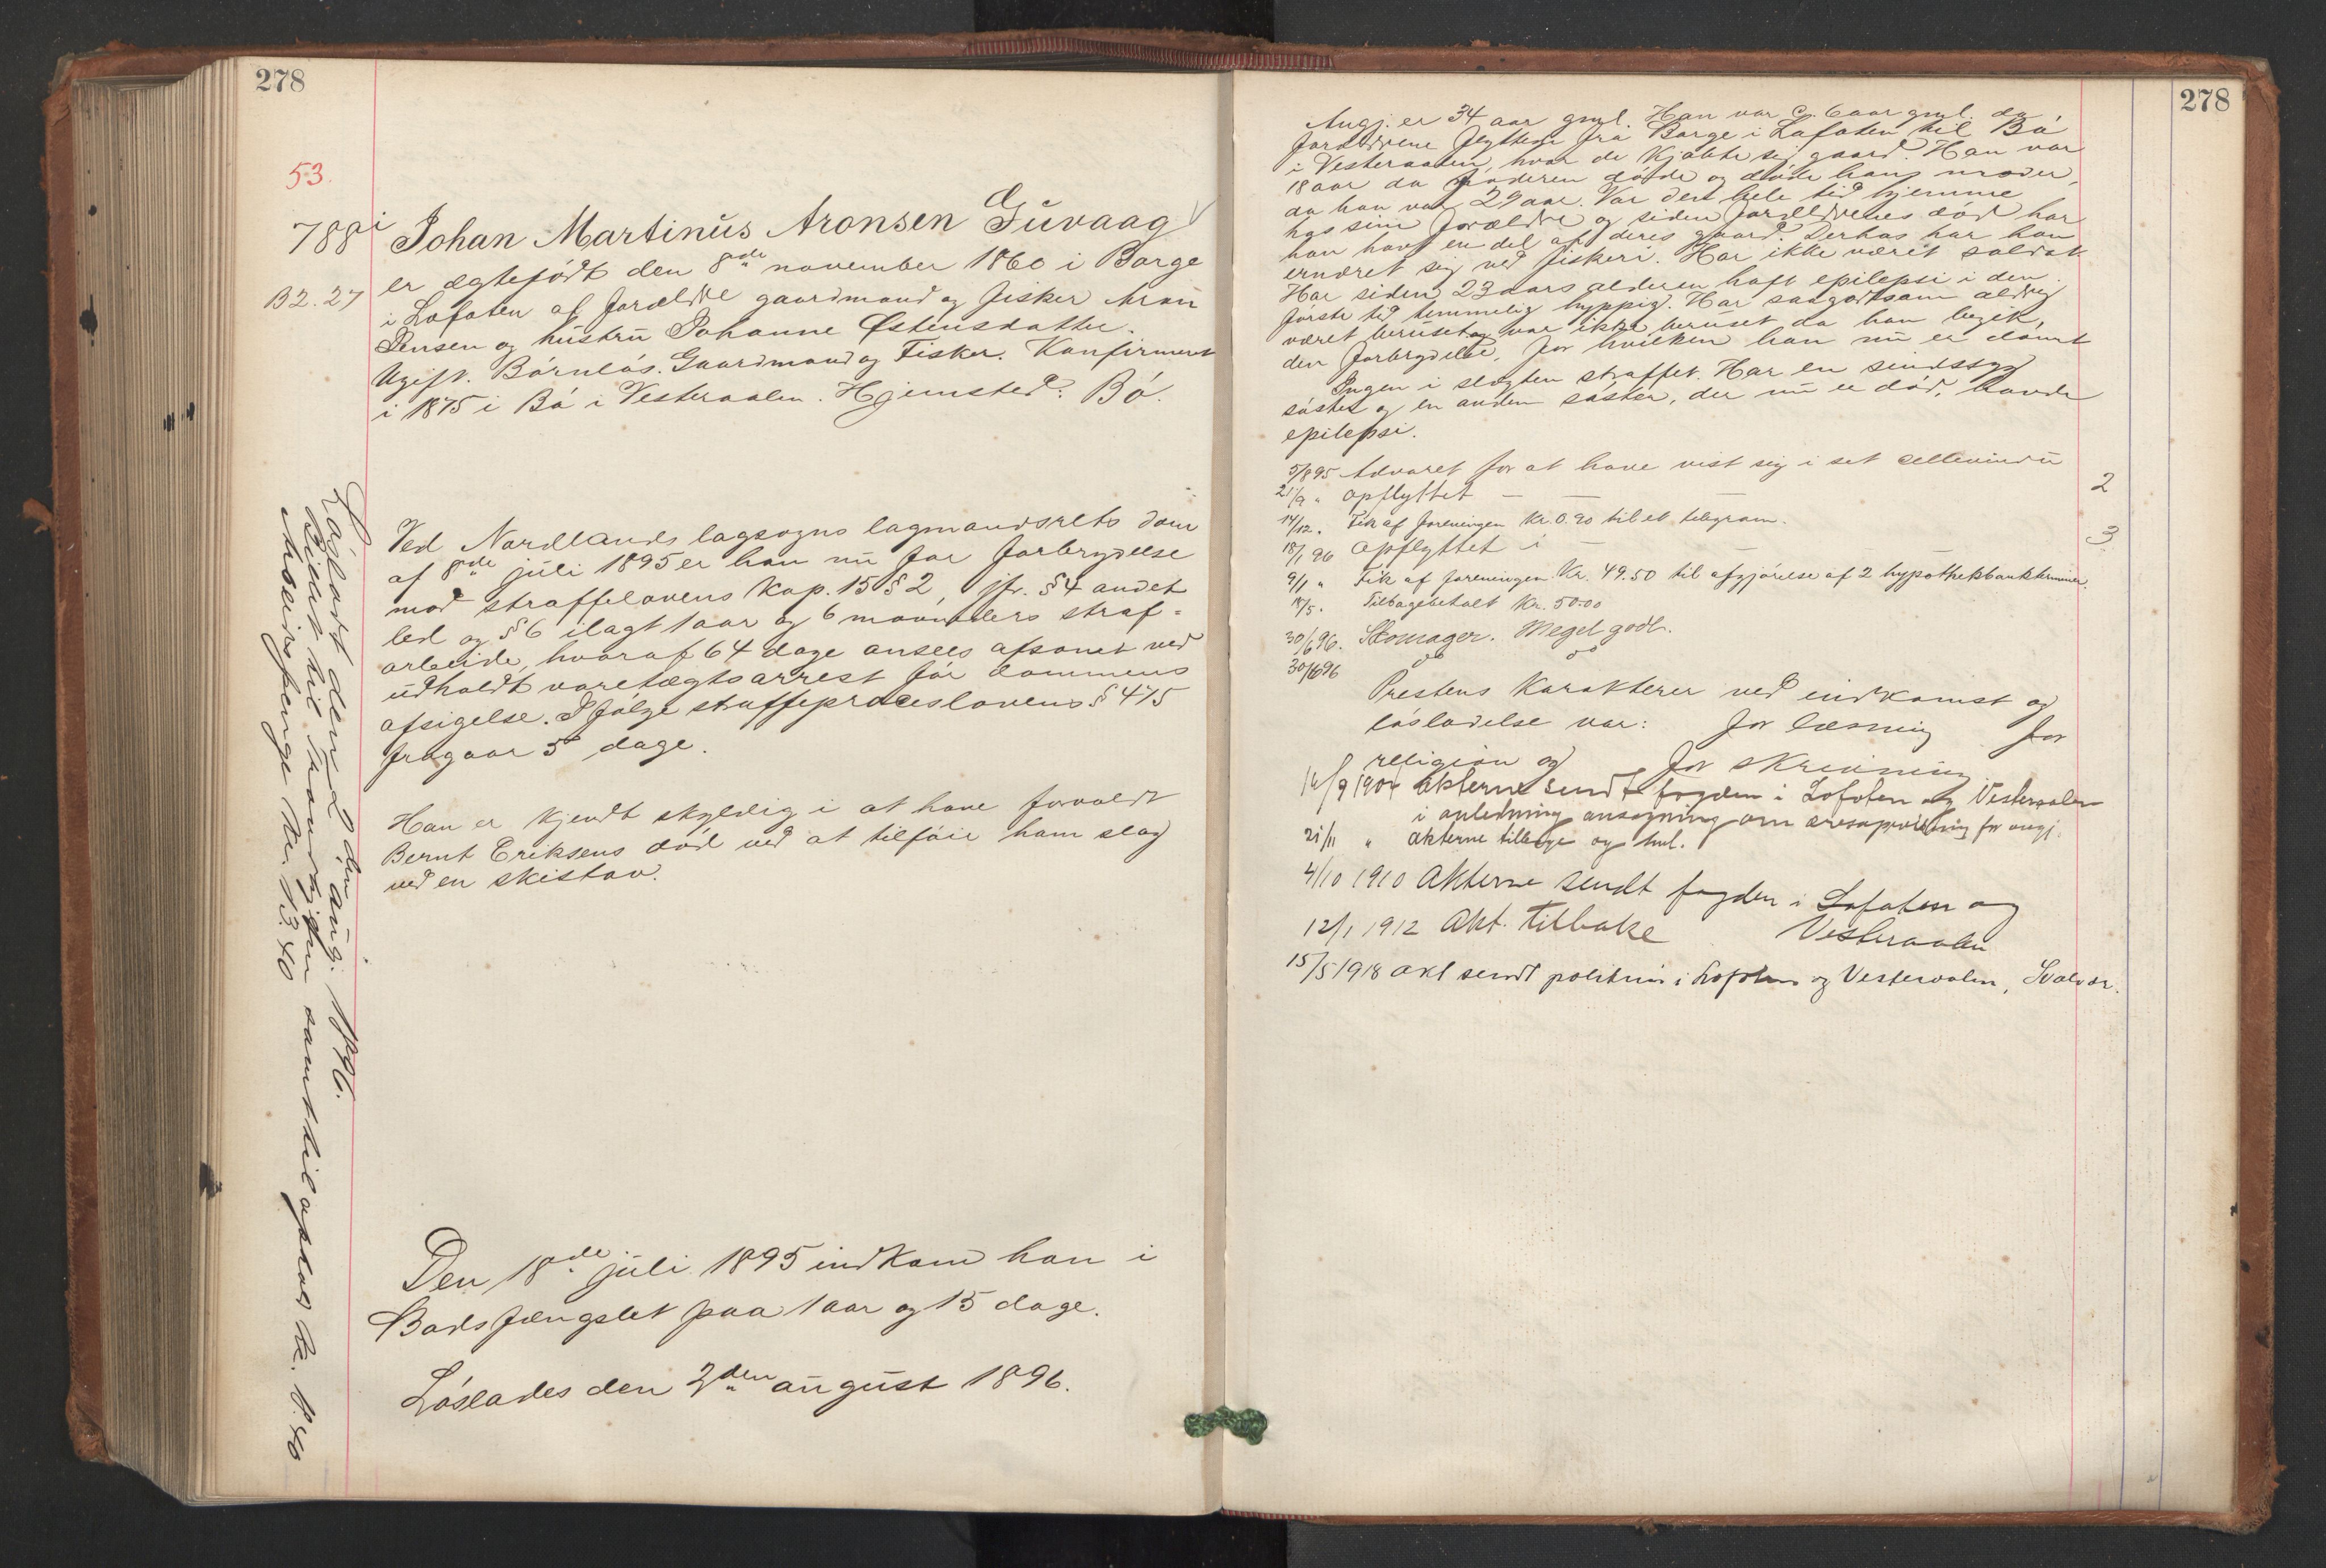 278
53.
788 i
B2. 27
Johan Martinus Aronsen Guvaag
er ægtefödt den 8de november 1860 i Borge
i Lofoten af forældre gaardmand og fisker Aron
Jensen og hustru Johanne Østensdatter.
Ugift. Börnlös. Gaardmand og Fisker. Konfirmert
i 1875 i Bö i Vesteraalen. Hjemsted: Bö.
Ved Nordlands lagsogns lagmandsrets dom
af 8de juli 1895 er han nu for forbrydelse
mod straffelovens kap. 15 § 2, jfr. § 4 andet
led og § 6 ilagt 1 aar og 6 maaneders straf-
arbeide, hvoraf 64 dage ansees afsonet ved
udholdt varetægtsarrest før dommens
afsigelse. Ifölge straffeproceslovens § 475
fragaar 5 dage.
Han er kjendt skyldig i at have forvoldt
Bernt Eriksens död ved at tilföie ham slag
ved en skistav.
Den 18de juli 1895 indkom han i
Bodsfængslet paa 1 aar og 15 dage.
Löslades den 2den august 1896.
Lösladt den 2den aug. 1896.
Billet til samt til afsked kr. 8.40
kr. 13.40
278
Angj. er 34 aar gml. Han var c. 6 aar gml. da
forældrene flyttede fra Borge i Lofoten til Bö
i Vesteraalen, hvor de kjöbte sig gaard. Han var
18 aar da faderen döde og döde hans moder,
da han var 29 aar. Var den hele tid hjemme
hos sine forældre og siden forældrenes död har
han havt en del af deres gaard. Derhos har han
ernæret sig ved fiskeri. Har ikke været soldat.
Har siden 23 aars alderen haft epilepsi i den
förste tid temmelig hyppig. Har saagodtsom aldrig
været beruset og var ikke beruset da han begik
den forbrydelse, for hvilken han nu er dömt
Ingen i slægten straffet. Har en sindssyg
söster og en anden söster, der nu er död, havde
epilepsi.
5/8 95 Advaret for at have vist sig i sit cellevindu
21/9 " Opflyttet — — — 2
14/12. Fik af foreningen Kr. 0.90 til et telegram.
18/1 96 Opflyttet i — — — 3
9/1 " Fik af foreningen Kr. 49.50 til afgjörelse af 2 hypothekbankterminer.
/5. Tilbagebetalt Kr. 50.00
30/6 96. Skomager. Meget godt.
30/6 96
Prestens Karakterer ved indkomst og
lösladelse var: for læsning for
religion og for skrivning
16/9 1904 Akterne sendt fogden i Lofoten og Vesteraalen
i anledning ansøgning om æresopreisning for angj.
21/11 " Akterne tilbage og hul.
4/10 1910 Akterne sendt fogden i Lofoten og
Vesteraalen
12/1 1912 Akt. tilbake
15/5 1918 Akt sendt politim i Lofoten og Vesteraalen, Svolvær.